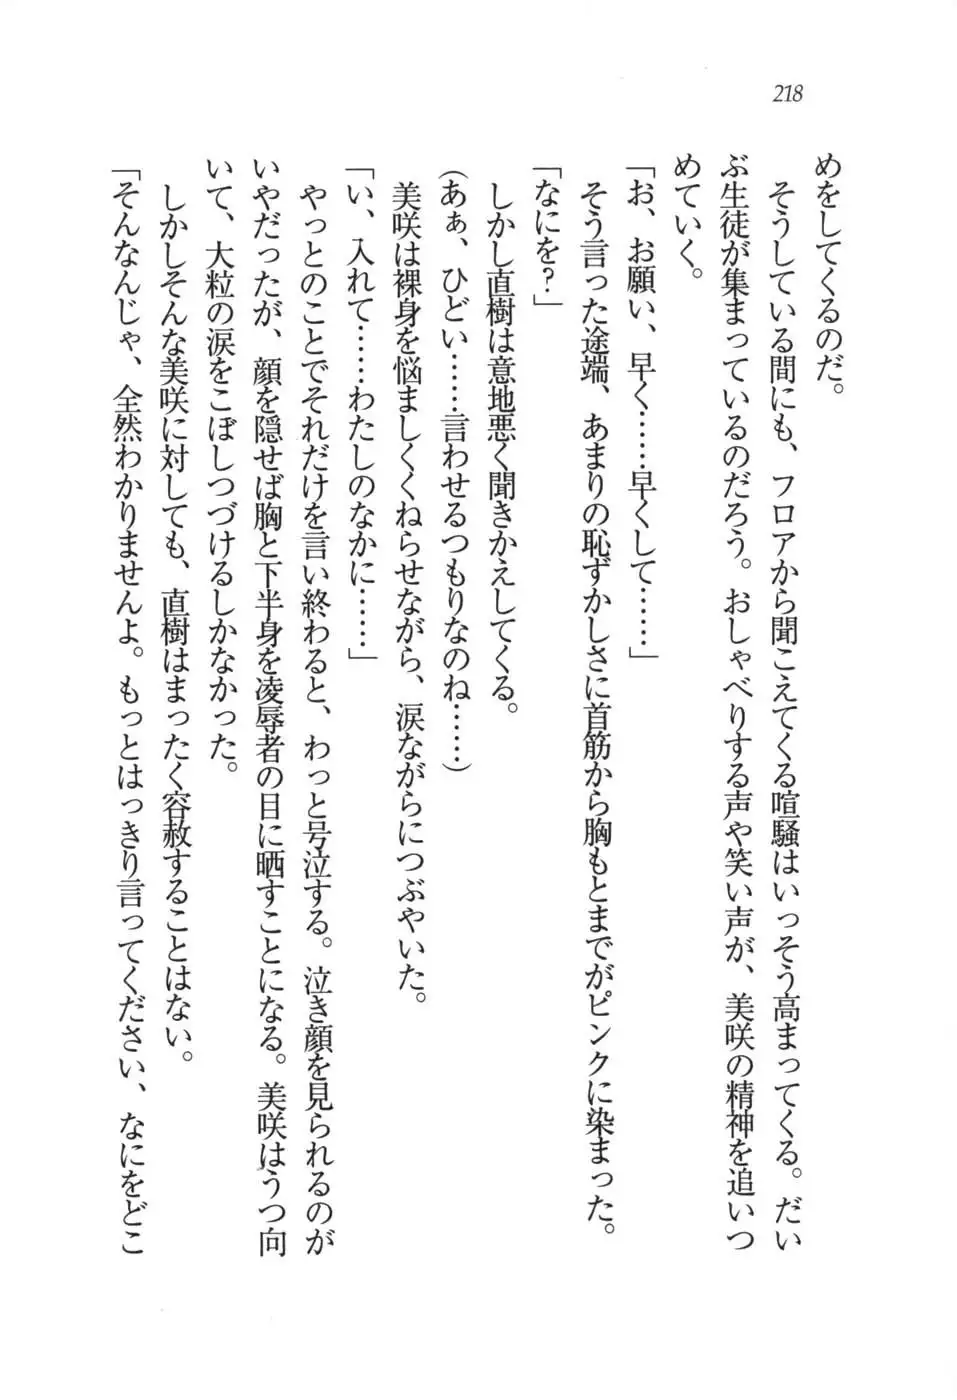 218
めをしてくるのだ。
そうしている間にも、フロアから聞こえてくる喧騒はいっそう高まってくる。だい
ぶ生徒が集まっているのだろう。おしゃべりする声や笑い声が、美咲の精神を追いつ
めていく。
「お、お願い、早く……早くして……」
そう言った途端、あまりの恥ずかしさに首筋から胸もとまでがピンクに染まった。
「なにを？」
しかし直樹は意地悪く聞きかえしてくる。
（あぁ、ひどい……言わせるつもりなのね……）
美咲は裸身を悩ましくくねらせながら、涙ながらにつぶやいた。
「い、入れて……わたしのなかに……」
やっとのことでそれだけを言い終わると、わっと号泣する。泣き顔を見られるのが
いやだったが、顔を隠せば胸と下半身を凌辱者の目に晒すことになる。美咲はうつ向
いて、大粒の涙をこぼしつづけるしかなかった。
しかしそんな美咲に対しても、直樹はまったく容赦することはない。
「そんなんじゃ、全然わかりませんよ。もっとはっきり言ってください、なにをどこ